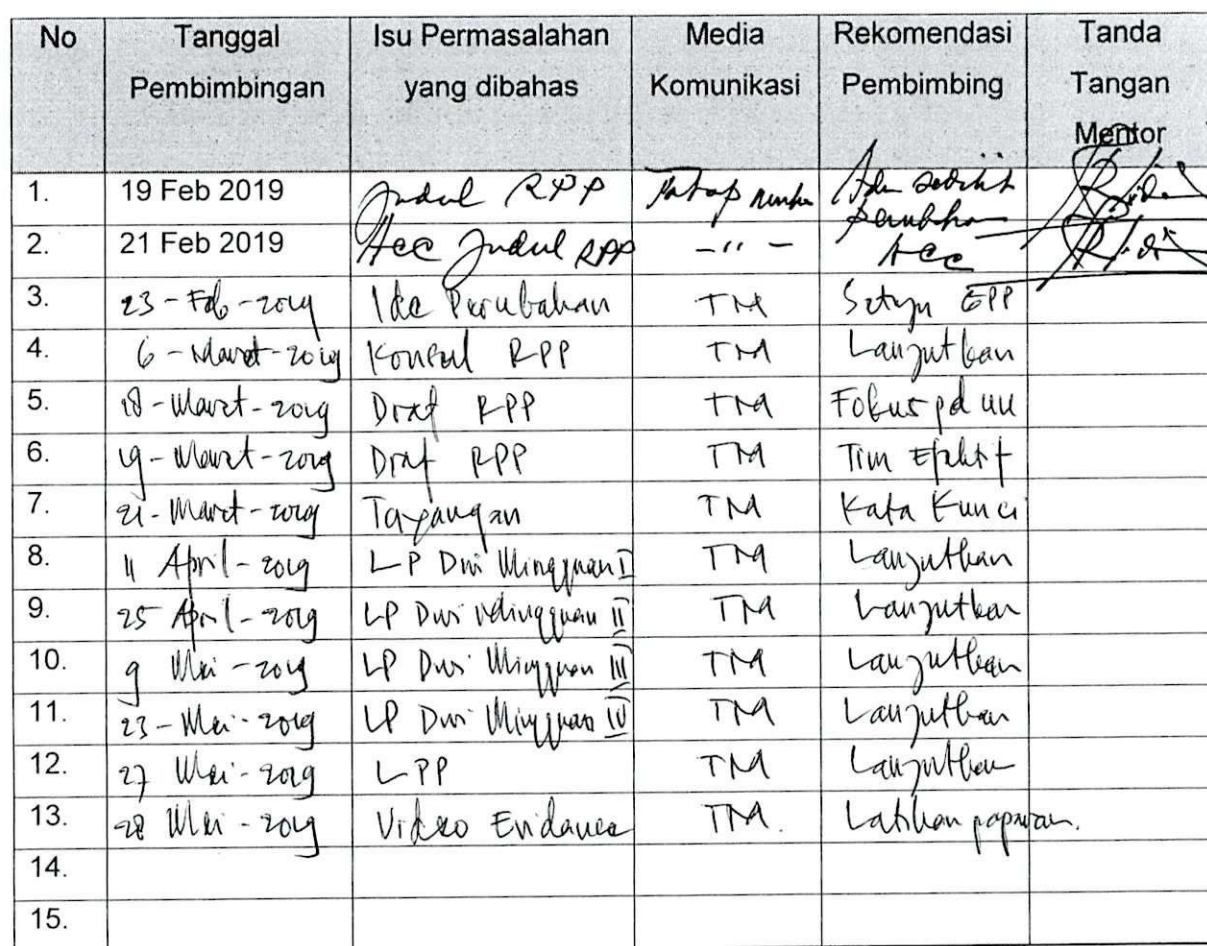 No Tanggal Pembimbingan Isu Permasalahan yang dibahas Media Komunikasi Rekomendasi Pembimbing Tanda Tangan Mentor
1. 19 Feb 2019 Judul RPP Tatap muka Ada sedikit perubahan
2. 21 Feb 2019 Acc Judul RPP - " - Acc
3. 23 - Feb - 2019 Ide Perubahan TM Setuju EPP
4. 6 - Maret - 2019 Konsul RPP TM Lanjutkan
5. 18 - Maret - 2019 Draf RPP TM Fokus pd
6. 19 - Maret - 2019 Draf RPP TM Tim Efektif
7. 21 - Maret - 2019 Tayangan TM Kata Kunci
8. 11 April - 2019 LP Dwi Mingguan I TM Lanjutkan
9. 25 April - 2019 LP Dwi Mingguan II TM Lanjutkan
10. 9 Mei - 2019 LP Dwi Mingguan III TM Lanjutkan
11. 23 - Mei - 2019 LP Dwi Mingguan IV TM Lanjutkan
12. 27 Mei - 2019 LPP TM Lanjutkan
13. 28 Mei - 2019 Video Evidance TM. Latihan paparan.
14.
15.